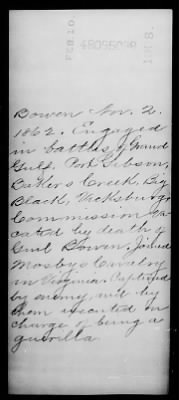 FEB. 10.
1865.
Bowen Nov. 2.
1862. Engaged
in battles of Grand
Gulf. Port Gibson,
Bakers Creek, Big
Black, Vicksburg
Commission va-
cated by death of
Genl Bowen, joined
Mosbys Cavalry
in Virginia. Captured
by enemy, and by
them executed on
charge of being a
guerilla.